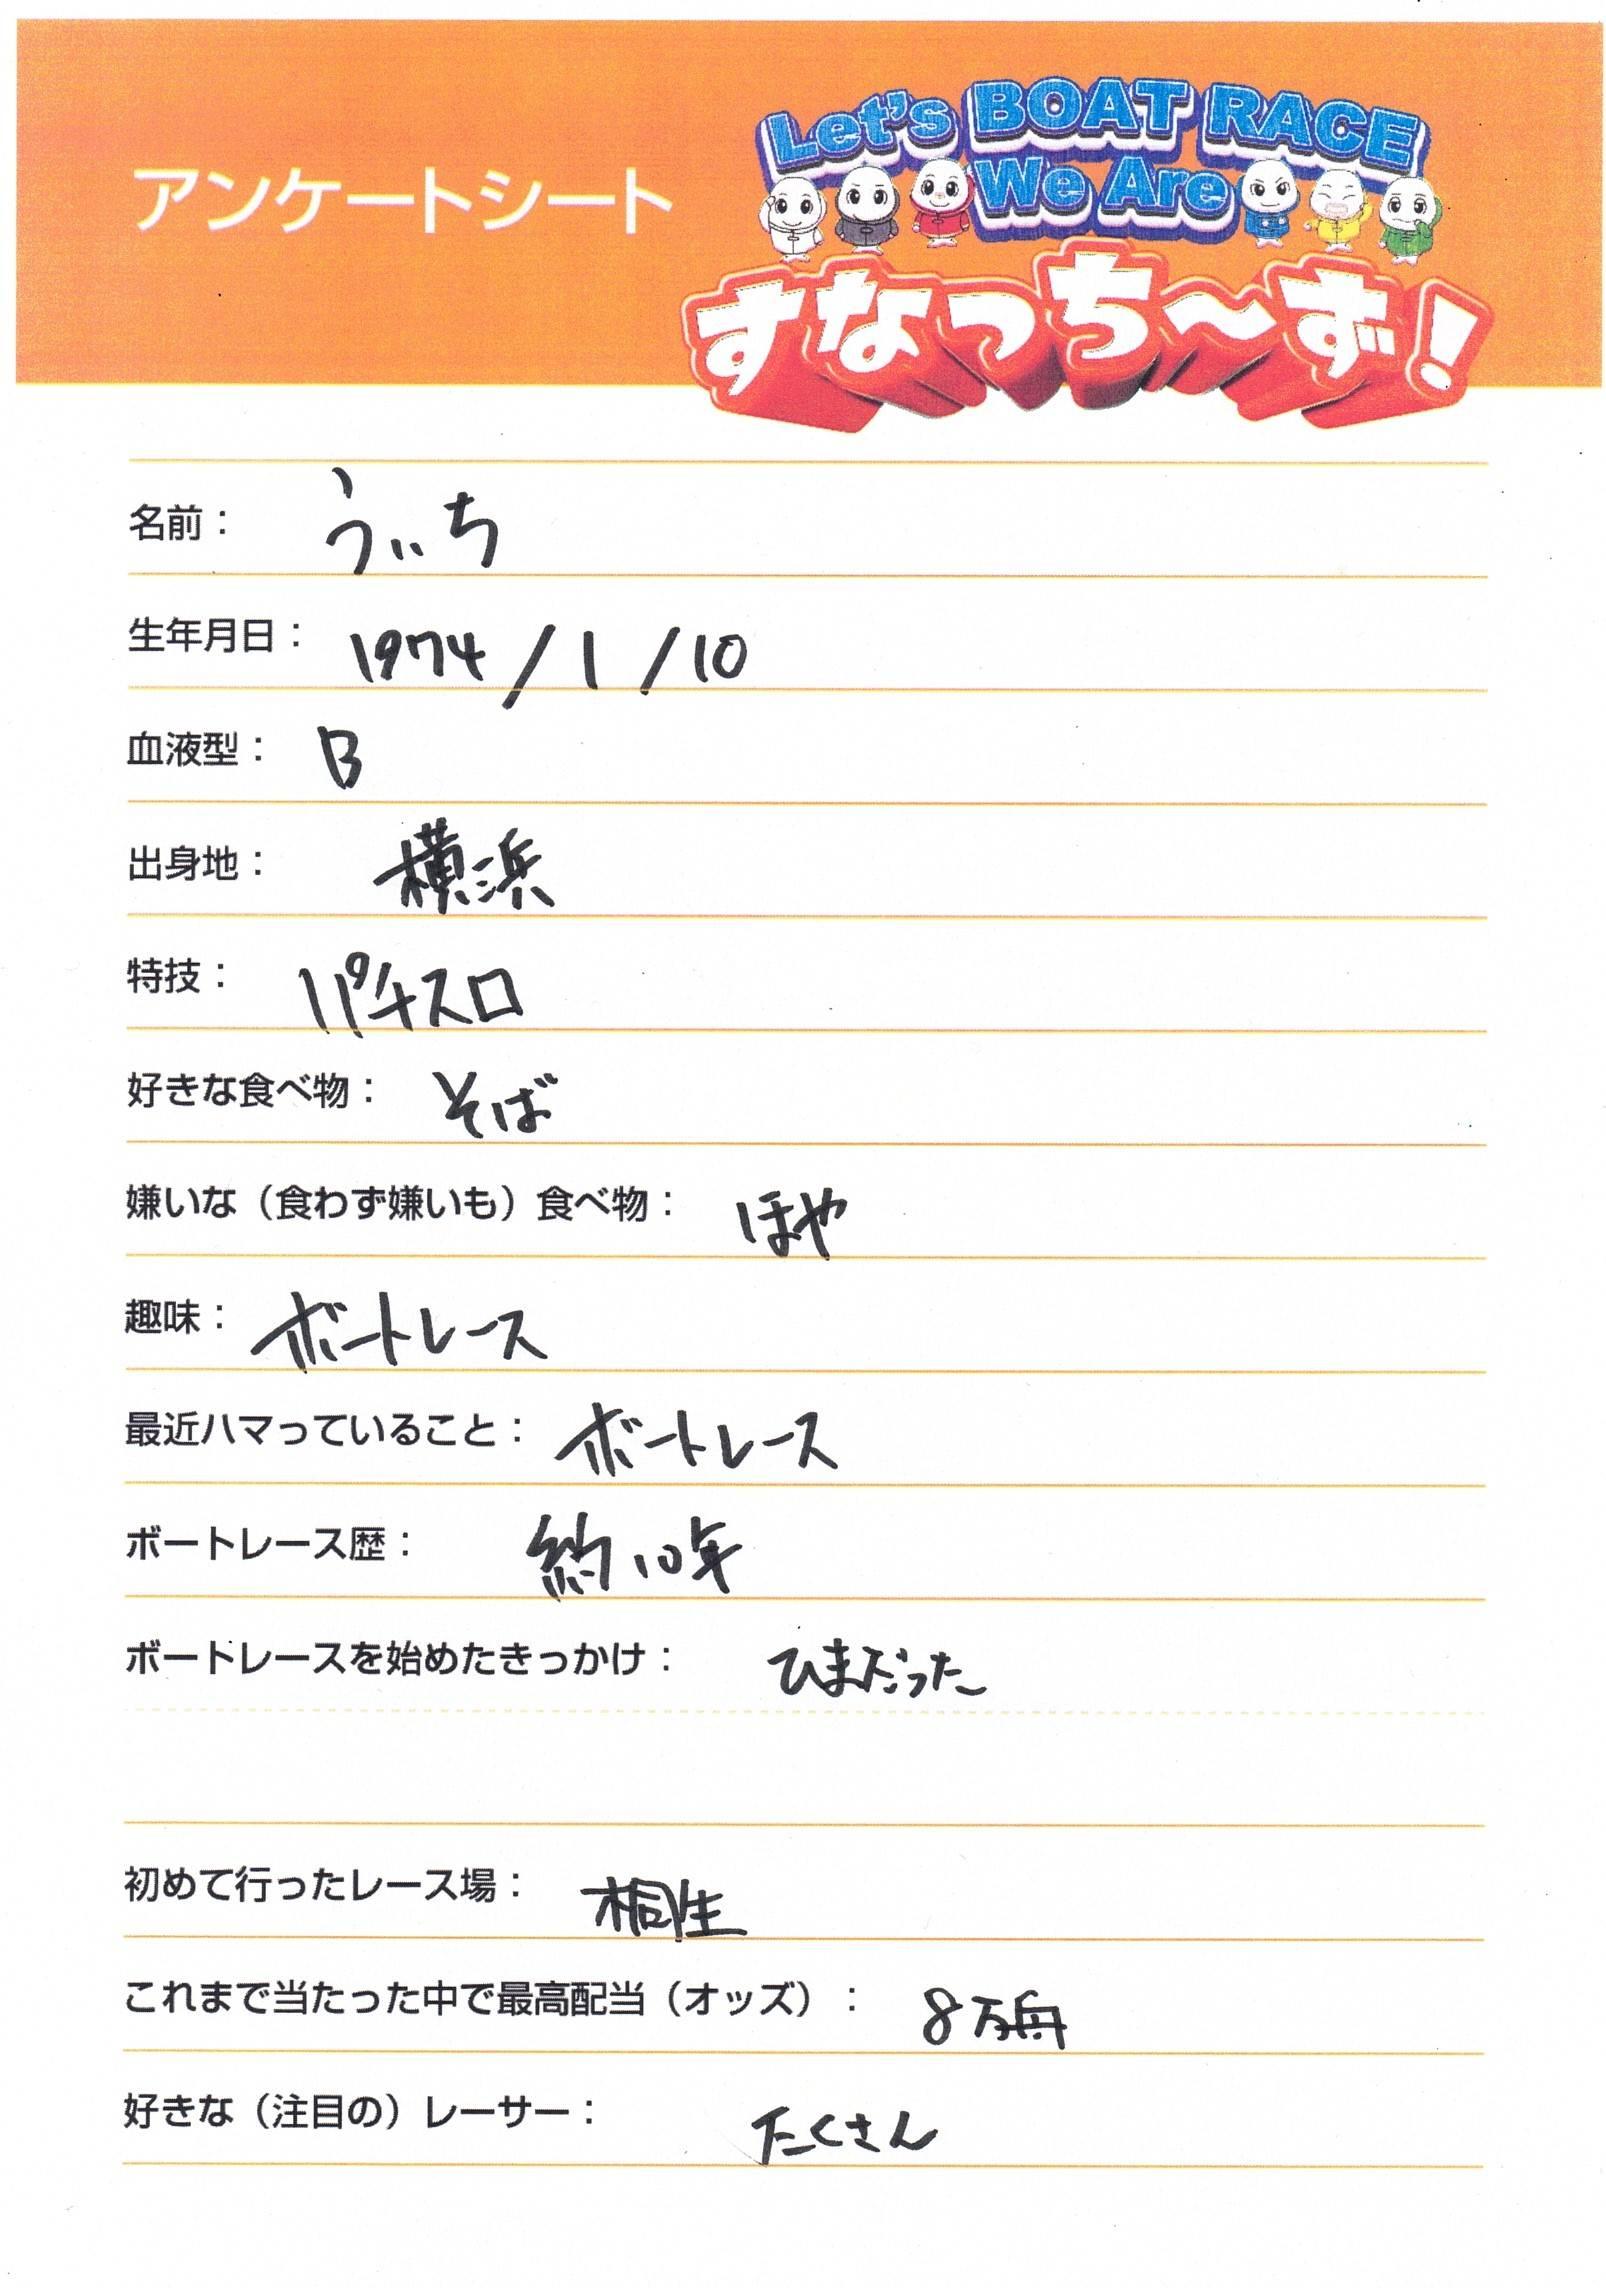 アンケートシート
Let's BOAT RACE
We Are
すなっち～ず！
名前： ういち
生年月日： 1974/1/10
血液型： B
出身地： 横浜
特技： パチスロ
好きな食べ物： そば
嫌いな（食わず嫌いも）食べ物： ほや
趣味： ボートレース
最近ハマっていること： ボートレース
ボートレース歴： 約10年
ボートレースを始めたきっかけ： ひまだった
初めて行ったレース場： 桐生
これまで当たった中で最高配当（オッズ）： 8万舟
好きな（注目の）レーサー： たくさん